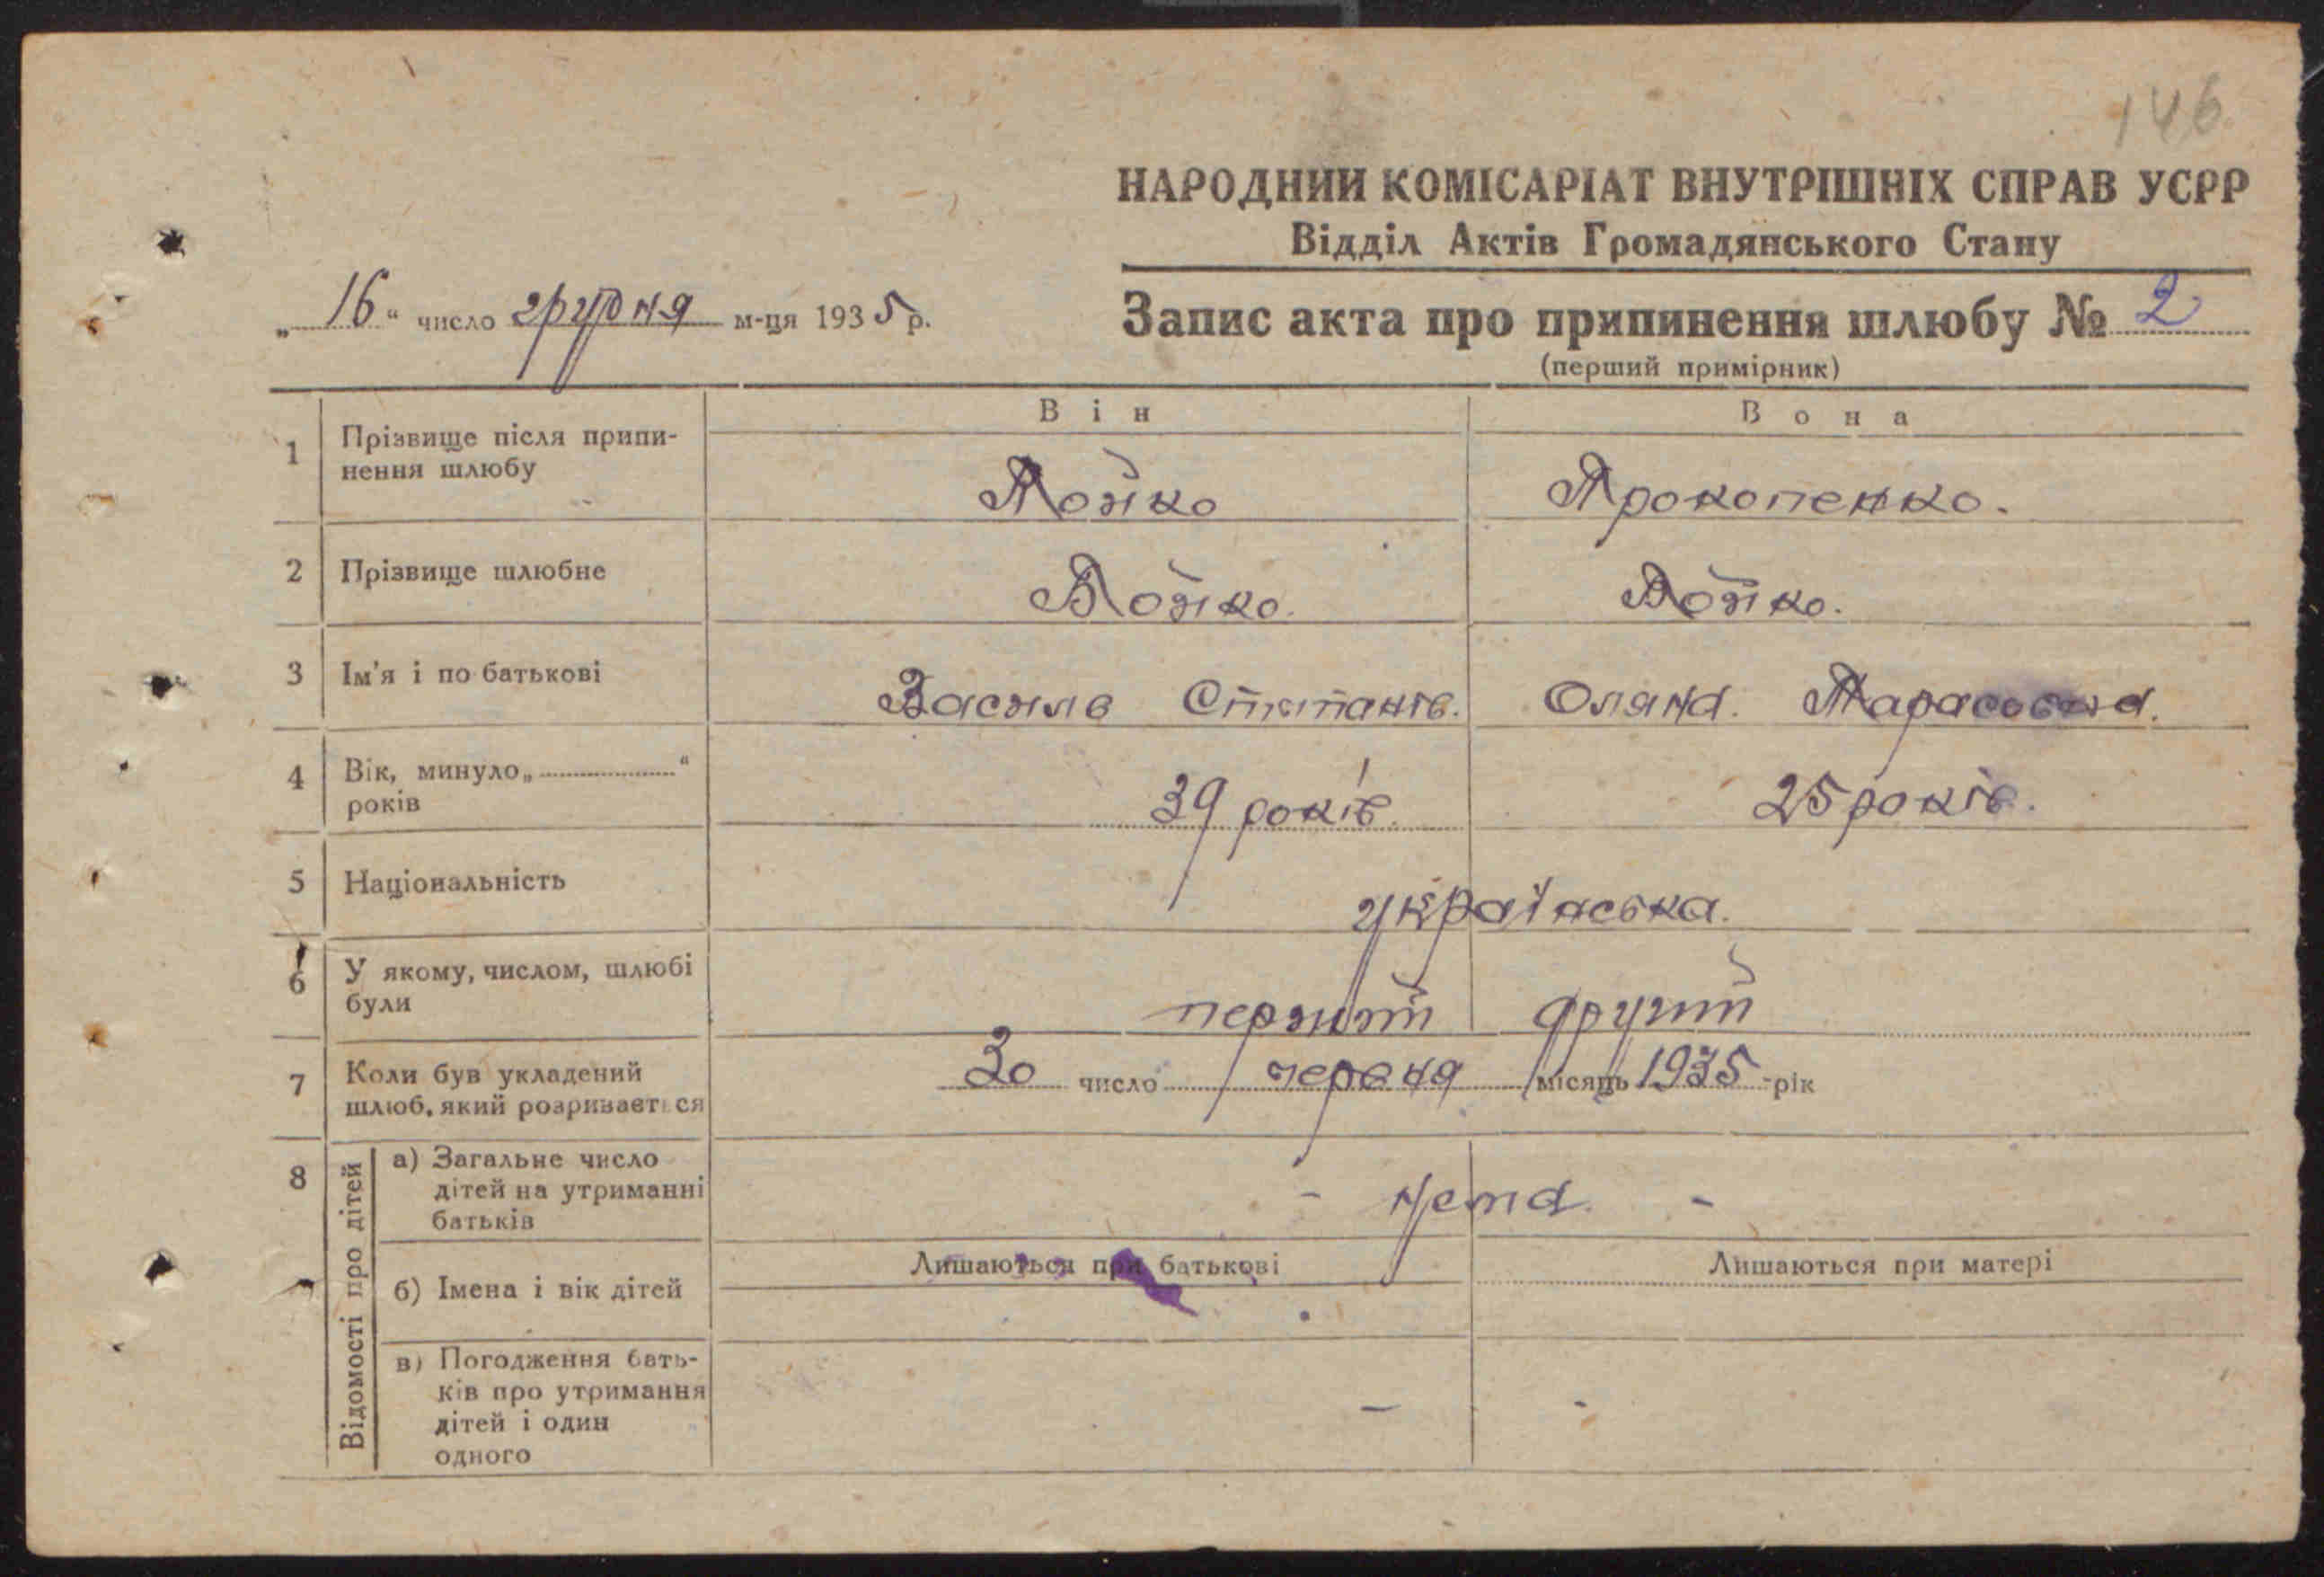 146
НАРОДНИЙ КОМІСАРІАТ ВНУТРІШНІХ СПРАВ УСРР
Відділ Актів Громадянського Стану
„16“ число грудня м-ця 1935 р.
Запис акта про припинення шлюбу № 2
(перший примірник)
Він Вона
1 Прізвище після припи-
нення шлюбу
Бойко Прокопенко.
2 Прізвище шлюбне Бойко. Бойко.
3 Ім'я і по батькові Василь Степанів. Оляна. Тарасовна.
4 Вік, минуло „ “
років
39 років. 25 років.
5 Національність українська.
6 У якому, числом, шлюбі
були
перший другий
7 Коли був укладений
шлюб, який розривається
30 число червня місяць 1935 -рік
8 Відомості про дітей
а) Загальне число
дітей на утриманні
батьків
- нема. -
Лишаються при батькові Лишаються при матері
б) Імена і вік дітей
в) Погодження бать-
ків про утримання
дітей і один
одного
- -